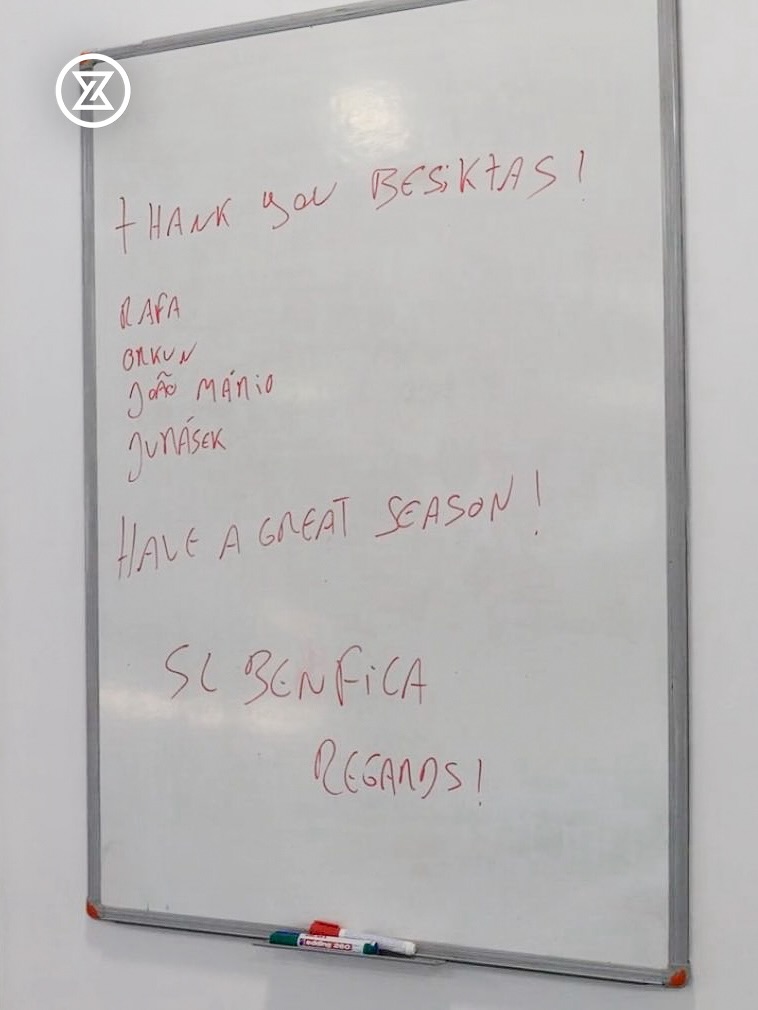 tHANK you BESiKtAS!
RAFA
ORKUN
JOÃO MÁRiO
JURÁSEK
HAVE A GREAT SEASON!
SL BENFiCA
REGARDS!
edding 260